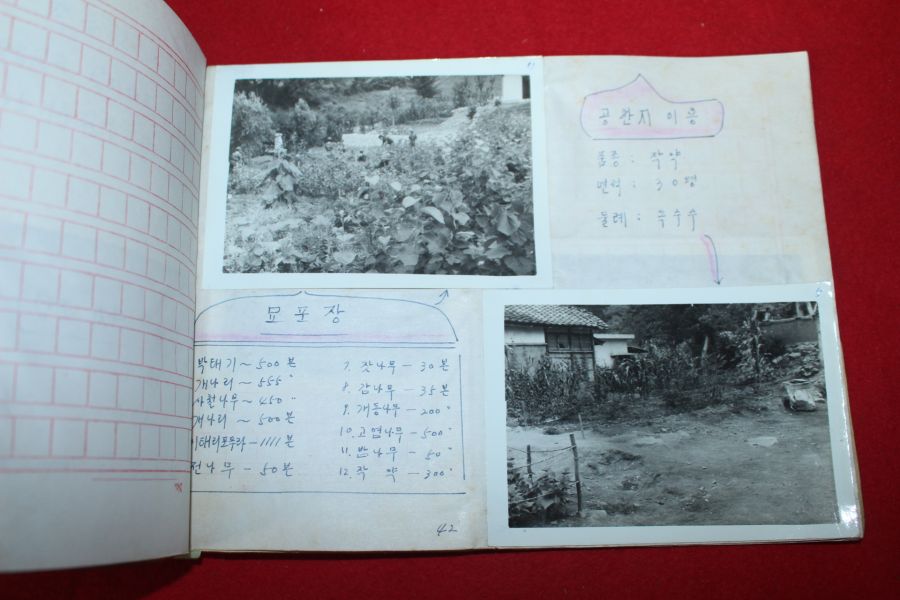 공한지 이용
품종 : 작약
면적 : 30평
둘레 : 옥수수
묘포장
박태기 ~ 500본
개나리 ~ 555 〃
사철나무 ~ 450 〃
개나리 ~ 500본
이태리포푸라 - 1111본
전나무 - 50본
7. 잣나무 - 30본
8. 감나무 - 35본
9. 개동나무 - 200 〃
10. 고염나무 - 500 〃
11. 밤나무 - 50 〃
12. 작약 - 300 〃
42